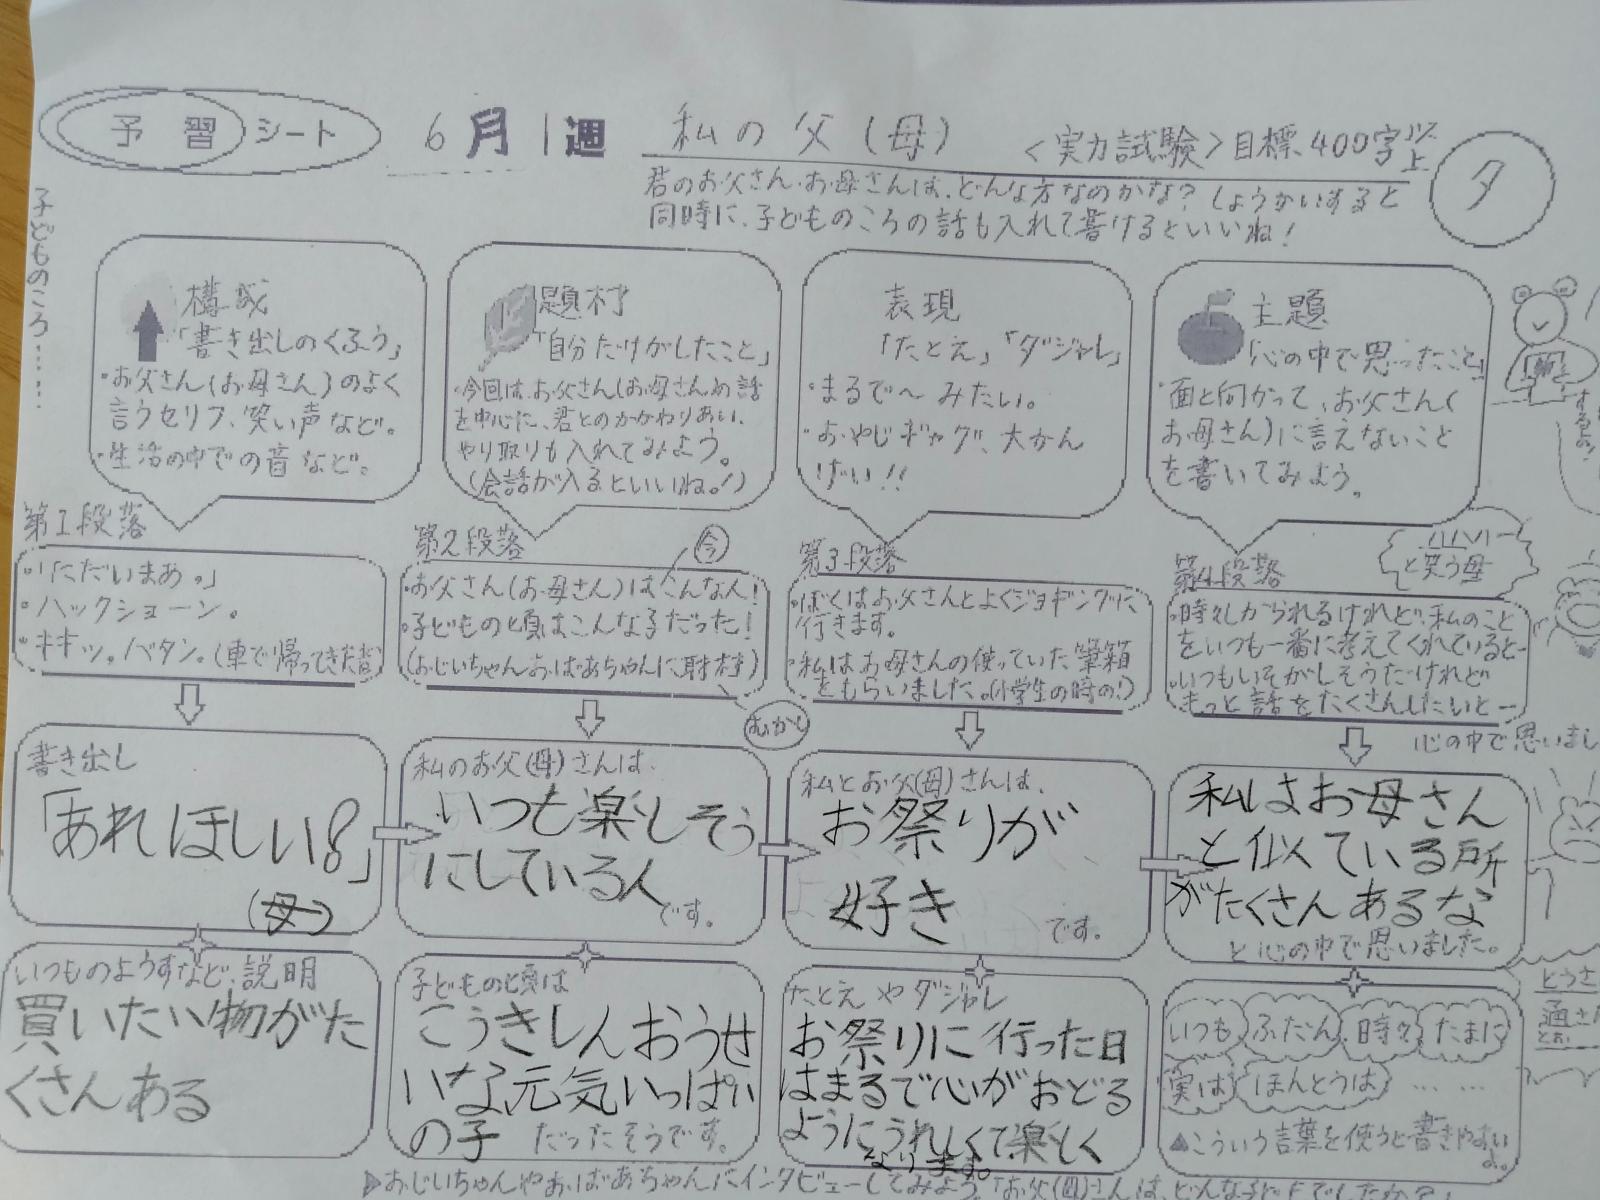 予習シート 6月1週 私の父(母) <実力試験>目標400字以上 夕
君のお父さん・お母さんは、どんな方なのかな?しょうかいすると
同時に、子どものころの話も入れて書けるといいね!
子どものころ……
構成
「書き出しのくふう」
・お父さん(お母さん)のよく
言うセリフ、笑い声など。
・生活の中での音など。
題材
「自分だけがしたこと」
・今回は、お父さん(お母さん)の話
を中心に、君とのかかわりあい、
やり取りも入れてみよう。
(会話が入るといいね。!)
表現
「たとえ」「ダジャレ」
・まるで〜みたい。
・おやじギャグ、大かん
げい!!
主題
「心の中で思ったこと」
・面と向かって、お父さん(
お母さん)に言えないこと
を書いてみよう。
第1段落
・「ただいまあ。」
・ハックショーン。
・キキッ。バタン。(車で帰ってきた音)
第2段落
今
・お父さん(お母さん)はこんな人!
・子どもの頃はこんな子だった!
(おじいちゃん・おばあちゃんに取材)
むかし
第3段落
・ぼくはお父さんとよくジョギングに
行きます。
・私はお母さんの使っていた筆箱
をもらいました。(小学生の時の!)
第4段落
と笑う母
・時々しかられるけれど、私のこと
をいつも一番に考えてくれていると―
・いつもいそがしそうだけれど
もっと話をたくさんしたいと―
心の中で思いまし
書き出し
「あれほしい!」
(母)
私のお父(母)さんは、
いつも楽しそう
にしている人
です。
私とお父(母)さんは、
お祭りが
好き
です。
私はお母さん
と似ている所
がたくさんあるな
と心の中で思いました。
いつものようすなど、説明
買いたい物がた
くさんある
子どもの頃は
こうきしんおうせ
いな元気いっぱい
の子 だったそうです。
たとえやダジャレ
お祭りに行った日
はまるで心がおどる
ようにうれしくて楽しく
なります。
いつも ふだん 時々 たまに
実は ほんとうは ……
▲こういう言葉を使うと書きやすい
よ。
とうさ
▶おじいちゃんやおばあちゃんにインタビューしてみよう。「お父(母)さんは、どんな子どもでしたか?」